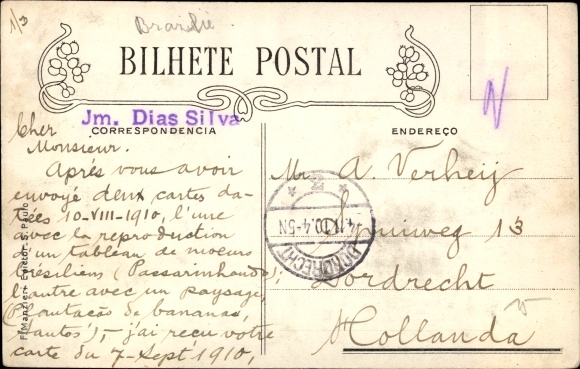 1/3
Brasilië
BILHETE POSTAL
Jm. Dias Silva
CORRESPONDENCIA
ENDEREÇO
N
Cher
Monsieur.
Après vous avoir
envoyé deux cartes da-
tées 10-VIII-1910, l'une
avec la reproduction
d'un tableau de moeurs
brésiliens (Passarinhando);
l'autre avec un paysage,
(Plantação de bananas,
Santos), - j'ai reçu votre
carte du 7-Sept 1910,
Mr A. Verheij
13
Dordrecht
Hollanda
DORDRECHT
4.11.10.4-5N
F. Manzieri Editor S. Paulo